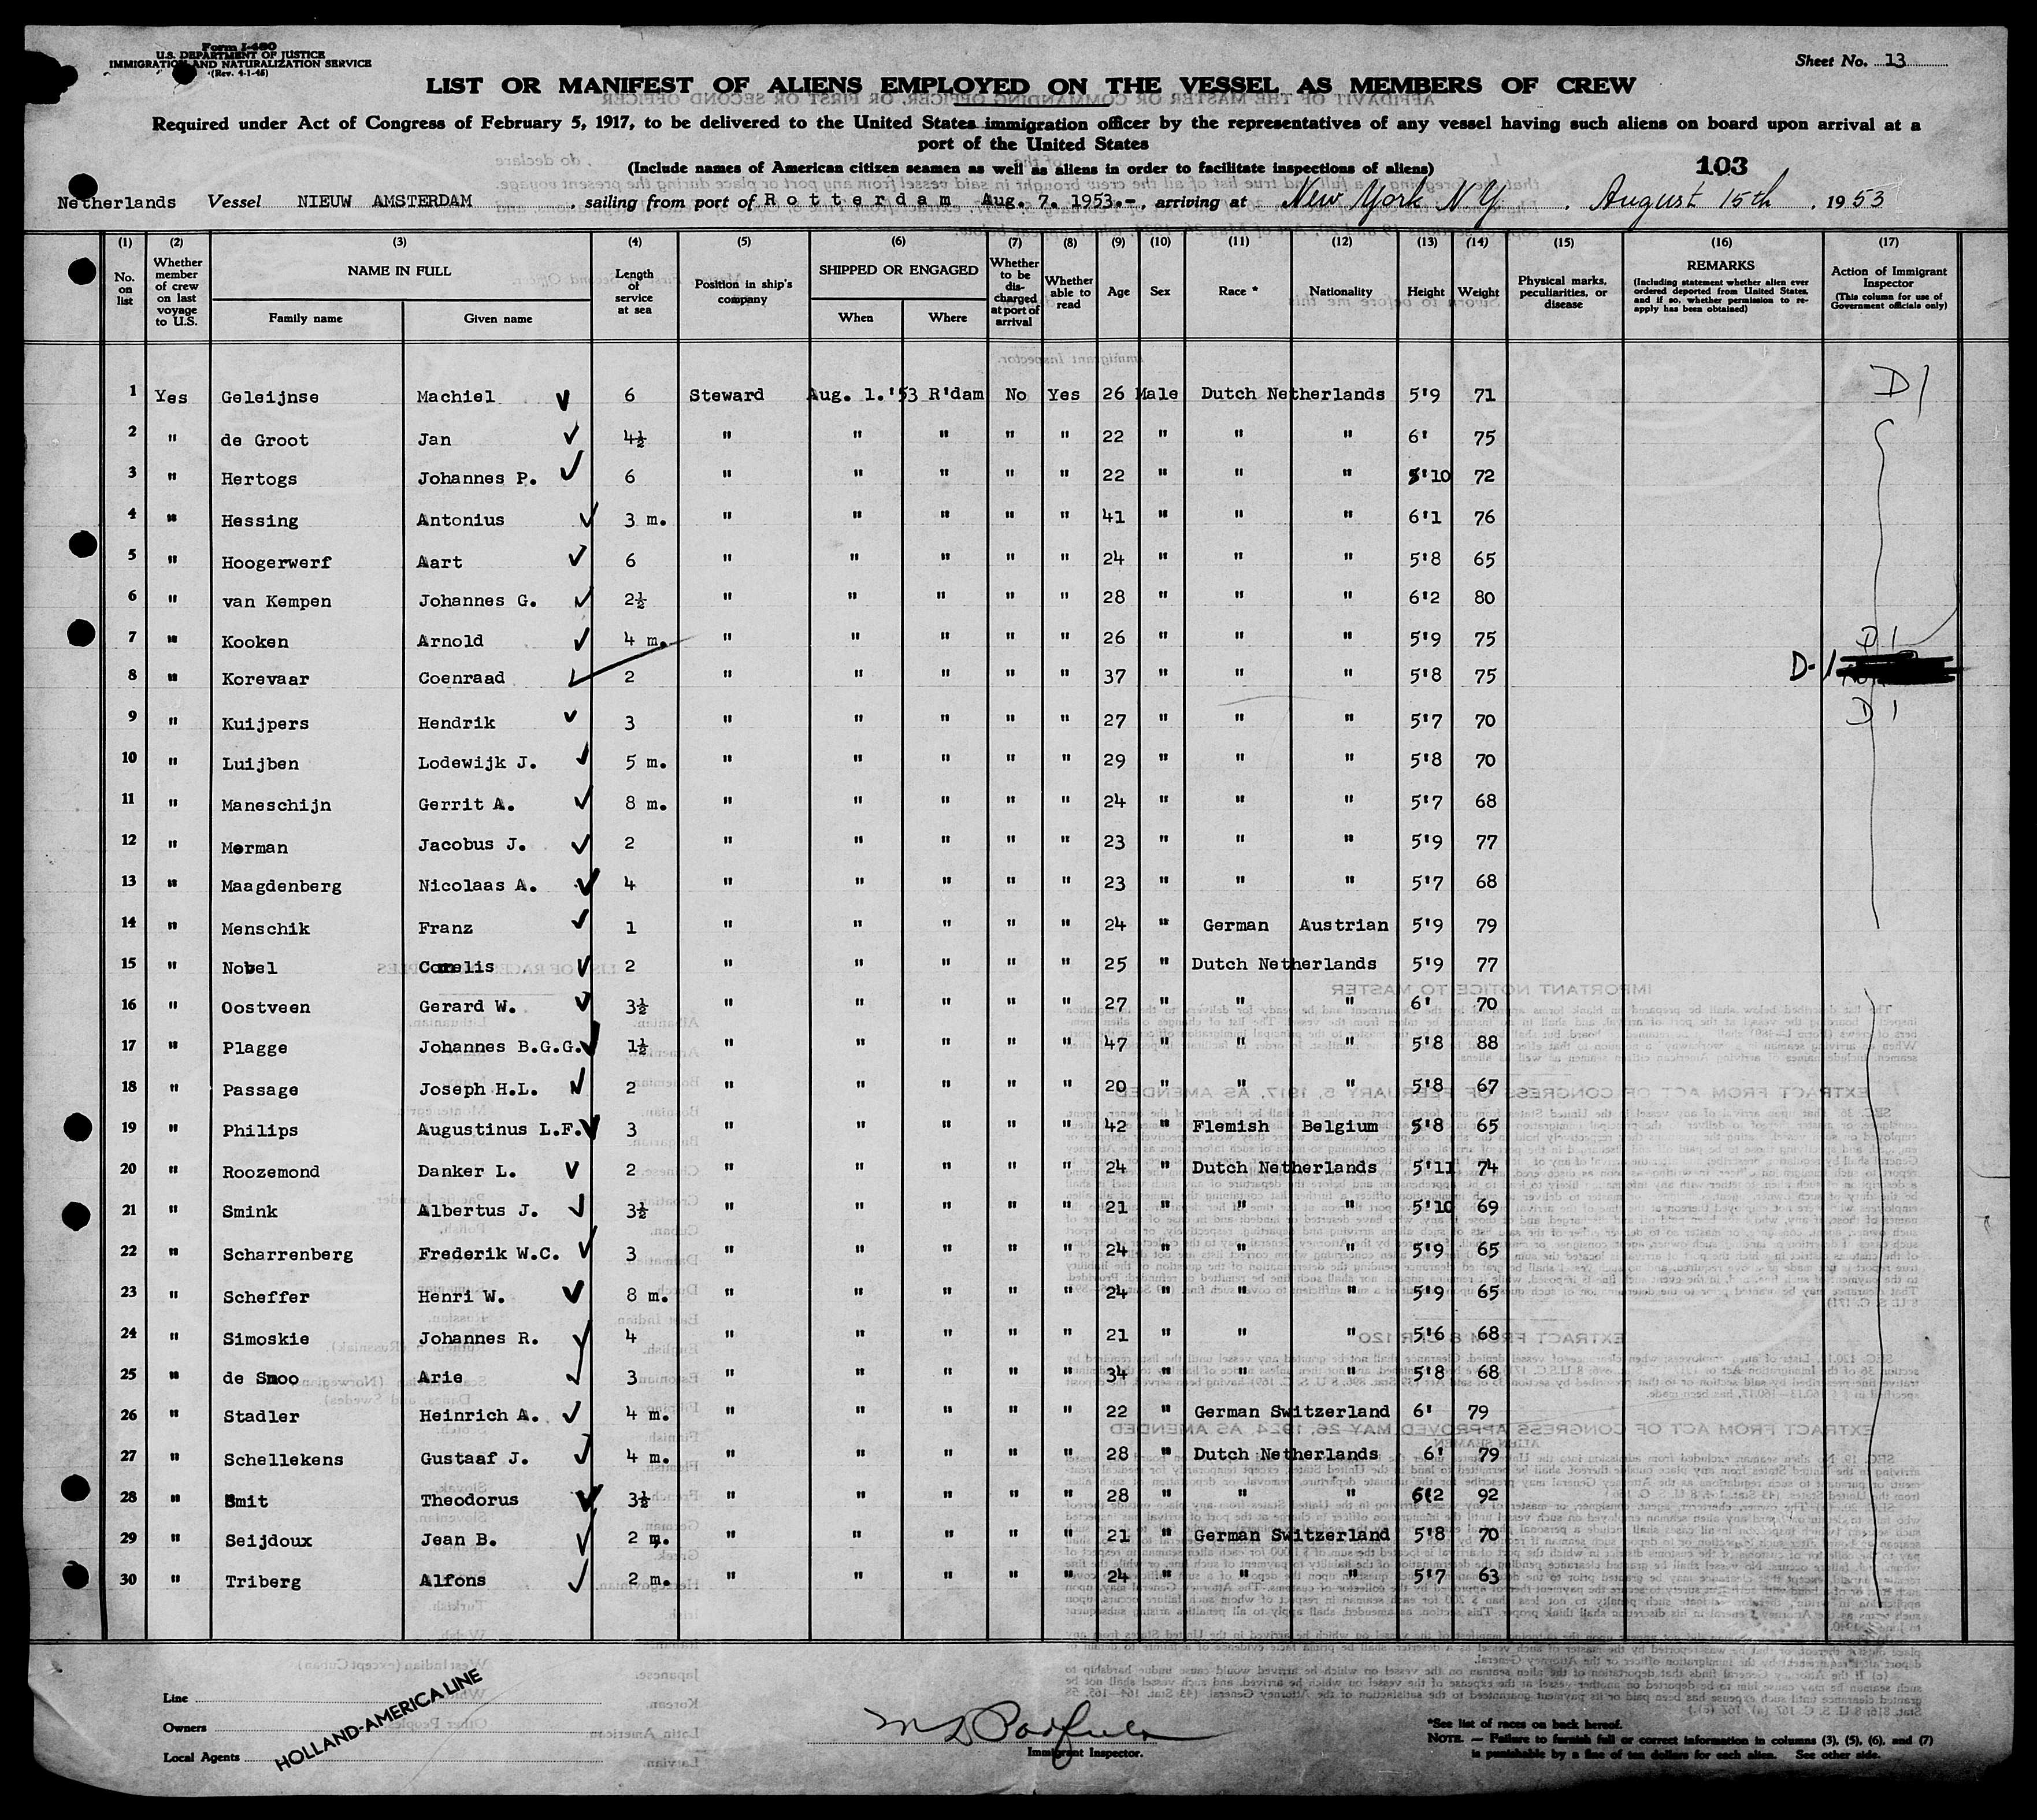 Form I-480
U.S. DEPARTMENT OF JUSTICE
IMMIGRATION AND NATURALIZATION SERVICE
(Rev. 4-1-45)
Sheet No. 13
LIST OR MANIFEST OF ALIENS EMPLOYED ON THE VESSEL AS MEMBERS OF CREW
Required under Act of Congress of February 5, 1917, to be delivered to the United States immigration officer by the representatives of any vessel having such aliens on board upon arrival at a
port of the United States
(Include names of American citizen seamen as well as aliens in order to facilitate inspections of aliens)
103
Netherlands Vessel NIEUW AMSTERDAM, sailing from port of Rotterdam Aug. 7. 1953.-, arriving at New York N.Y. August 15th, 1953
(1) (2) (3) (4) (5) (6) (7) (8) (9) (10) (11) (12) (13) (14) (15) (16) (17)
No. on list
Whether member of crew on last voyage to U.S.
NAME IN FULL
Family name Given name
Length of service at sea
Position in ship's company
SHIPPED OR ENGAGED
When Where
Whether to be discharged at port of arrival
Whether able to read
Age Sex Race * Nationality Height Weight
Physical marks, peculiarities, or disease
REMARKS
(Including statement whether alien ever ordered deported from United States, and if so, whether permission to reapply has been obtained)
Action of Immigrant Inspector
(This column for use of Government officials only)
1 Yes Geleijnse Machiel 6 Steward Aug. 1.'53 R'dam No Yes 26 Male Dutch Netherlands 5'9 71 D1
2 " de Groot Jan 4½ " " " " " 22 " " " 6' 75
3 " Hertogs Johannes P. 6 " " " " " 22 " " " 5'10 72
4 " Hessing Antonius 3 m. " " " " " 41 " " " 6'1 76
5 " Hoogerwerf Aart 6 " " " " " 24 " " " 5'8 65
6 " van Kempen Johannes G. 2½ " " " " " 28 " " " 6'2 80
7 " Kooken Arnold 4 m. " " " " " 26 " " " 5'9 75 D1
8 " Korevaar Coenraad 2 " " " " " 37 " " " 5'8 75 D-1
9 " Kuijpers Hendrik 3 " " " " " 27 " " " 5'7 70 D1
10 " Luijben Lodewijk J. 5 m. " " " " " 29 " " " 5'8 70
11 " Maneschijn Gerrit A. 8 m. " " " " " 24 " " " 5'7 68
12 " Merman Jacobus J. 2 " " " " " 23 " " " 5'9 77
13 " Maagdenberg Nicolaas A. 4 " " " " " 23 " " " 5'7 68
14 " Menschik Franz 1 " " " " " 24 " German Austrian 5'9 79
15 " Nobel Cornelis 2 " " " " " 25 " Dutch Netherlands 5'9 77
16 " Oostveen Gerard W. 3½ " " " " " 27 " " " 6' 70
17 " Plagge Johannes B.G.G. 1½ " " " " " 47 " " " 5'8 88
18 " Passage Joseph H.L. 2 " " " " " 20 " " " 5'8 67
19 " Philips Augustinus L.F. 3 " " " " " 42 " Flemish Belgium 5'8 65
20 " Roozemond Danker L. 2 " " " " " 24 " Dutch Netherlands 5'11 74
21 " Smink Albertus J. 3½ " " " " " 21 " " " 5'10 69
22 " Scharrenberg Frederik W.C. 3 " " " " " 24 " " " 5'9 65
23 " Scheffer Henri W. 8 m. " " " " " 24 " " " 5'9 65
24 " Simoskie Johannes R. 4 " " " " " 21 " " " 5'6 68
25 " de Snoo Arie 3 " " " " " 34 " " " 5'8 68
26 " Stadler Heinrich A. 4 m. " " " " " 22 " German Switzerland 6' 79
27 " Schellekens Gustaaf J. 4 m. " " " " " 28 " Dutch Netherlands 6' 79
28 " Smit Theodorus 3½ " " " " " 28 " " " 6'2 92
29 " Seijdoux Jean B. 2 m. " " " " " 21 " German Switzerland 5'8 70
30 " Triberg Alfons 2 m. " " " " " 24 " " " 5'7 63
Line
Owners
Local Agents
HOLLAND-AMERICA LINE
Immigrant Inspector.
*See list of races on back hereof.
NOTE. — Failure to furnish full or correct information in columns (3), (5), (6), and (7)
is punishable by a fine of ten dollars for each alien. See other side.